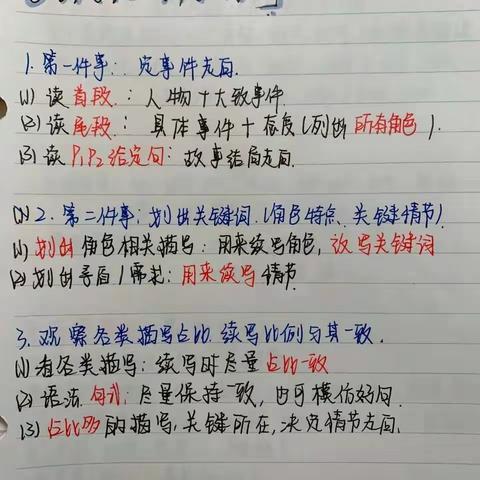 1. 第一件事: 定事件走向.
(1) 读首段: 人物+大致事件.
(2) 读尾段: 具体事件+态度(列出所有角色).
(3) 读P1P2给定句: 故事结局走向.
2. 第二件事: 划出关键词.(角色特点、关键情节)
(1) 划出角色相关描写: 用来续写角色, 仿写关键词
(2) 划出矛盾/需求: 用来续写情节.
3. 观察各类描写占比. 续写比例与其一致.
(1) 看各类描写: 续写时尽量占比一致
(2) 语法.句式: 尽量保持一致, 也可模仿好句.
(3) 占比多的描写, 关键所在, 决定情节走向.